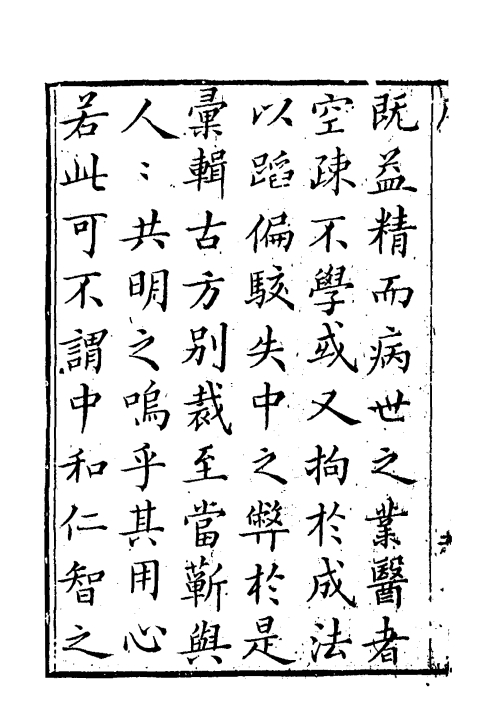 既益精而病世之業醫者
空疎不學或又拘於成法
以蹈偏駁失中之弊於是
彙輯古方別裁至當蘄與
人〻共明之嗚乎其用心
若此可不謂中和仁智之